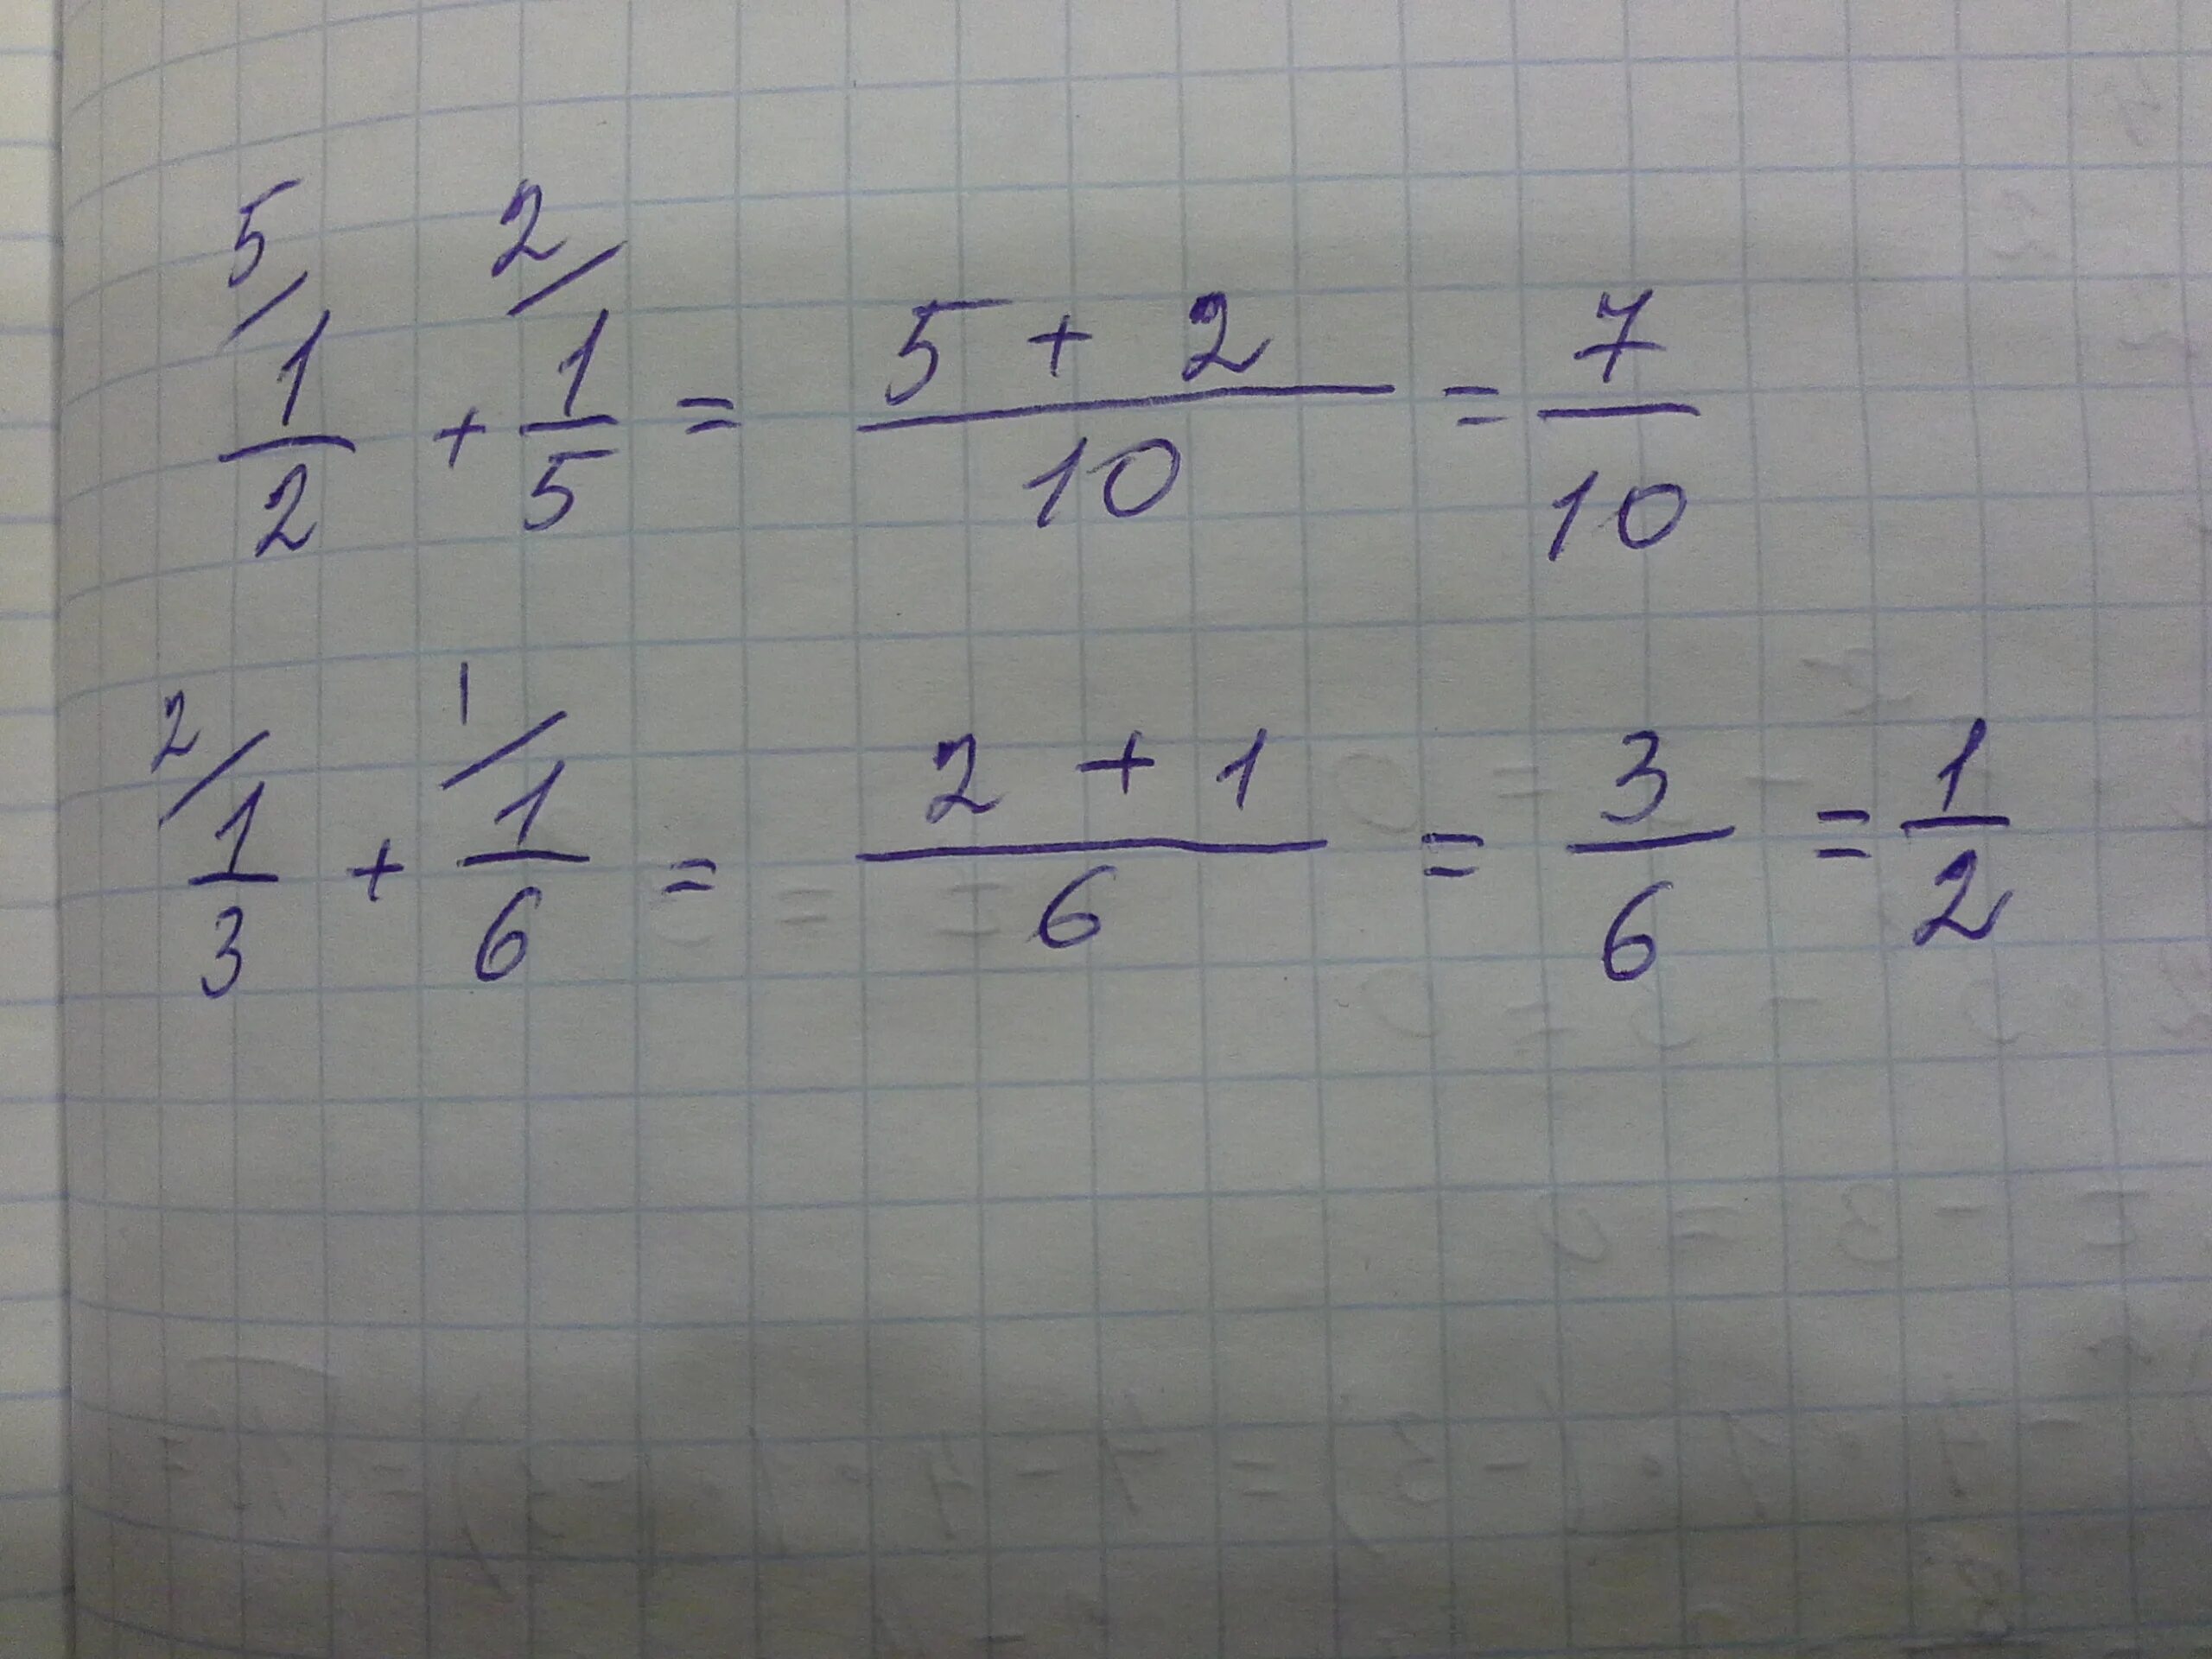 5/ 1/2 + 2/ 1/5 = (5 + 2)/10 = 7/10
2/ 1/3 + 1/ 1/6 = (2 + 1)/6 = 3/6 = 1/2